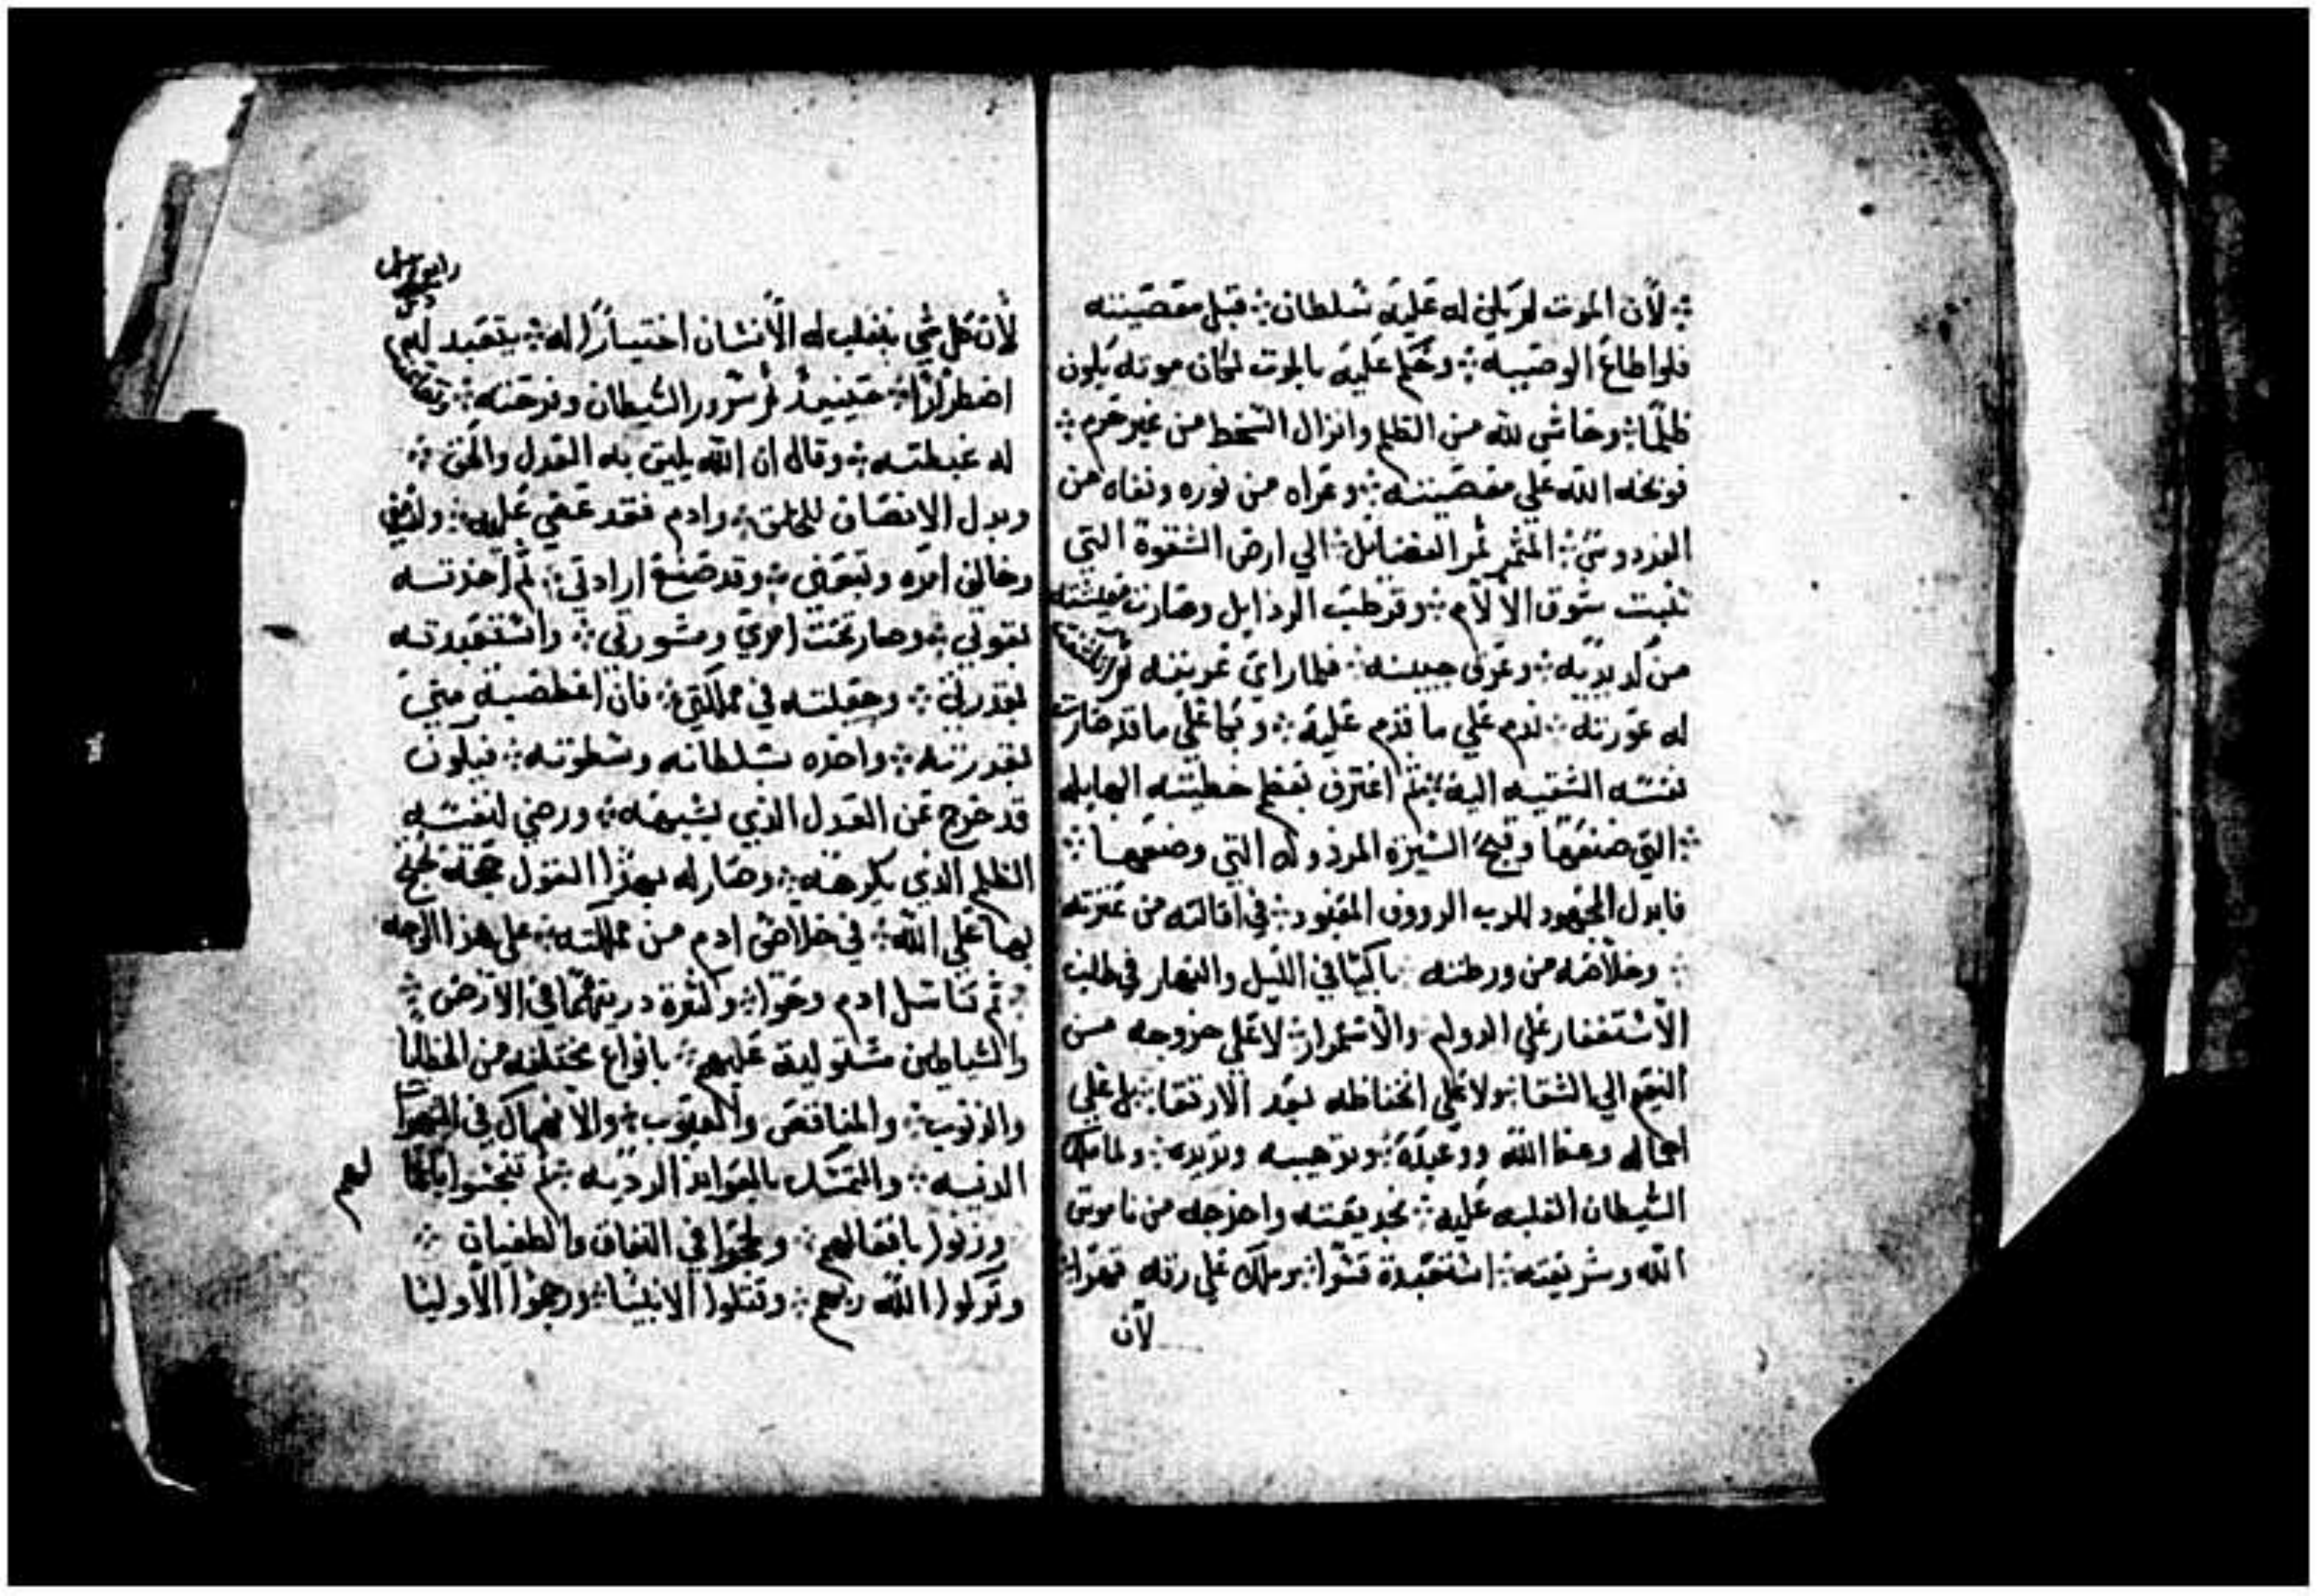 ؞ لأن الموت لم يكن له عليه سلطان ؞ قبل معصيته
فلو اطاع الوصيه ؞ وحكم عليه بالموت لكان موته يكون
ظلمًا ؞ وحاشى لله من الظلم وانزال السخط من غير جرم ؞
فوبخه الله على معصيته ؞ وعراه من نوره ونفاه من
الفردوس ؞ المثمر ثمر الفضايل ؞ الي ارض الشقوة التي
تنبت شوك الالام ؞ وقرطب الرذايل وصارت معيشته
من كد يديه ؞ وعرق جبينه ؞ فلما راى تعريته ثم انكشفت
له عورته ؞ ندم علي ما قدم عليه ؞ وبكا علي ما قد صارت
نفسه الشقيه اليه ؞ ثم اعترف بعظم خطيته الهايله
؞ التي صنعها وقبح السيره المرذوله التي وضعها ؞
فابدل المجهود للرب الرووف المعبود ؞ في اقالته من عترته
؞ وخلاصه من ورطته ؞ باكيًا في الليل والنهار في طلب
الاستغفار علي الدوام والاستمرار ؞ لا علي خروجه من
النعيم الي الشقا ؞ ولا علي انخفاظه بعد الارتقا ؞ بل علي
اهماله وعظ الله ووعيده ؞ وترهيبه وتزيده ؞ ولما ملك
الشيطان الغلبه عليه ؞ بخديعته واخرجه من ناموس
الله وشريعته ؞ استعبده قسرًا ؞ وملك علي رقه قهرًا ؞
لان
لأن كل شي يغلب له الأنسان اختيارًا له ؞ يتعبد له
اضطرارًا ؞ حينيذ ثم سرور الشيطان وفرحته ؞ وتعاظمت
له غبطته ؞ وقال ان الله يليق به العدل والحق ؞
وبدل الانصاف للخلق ؞ وادم فقد عصي عليه ؞
وخالف امره وتبعني ؞ وقد صنع ارادتي ؞ ثم اخذته
بقوتي ؞ وصار تحت امري ومشورتي ؞ واستعبدته
بقدرتي ؞ وجعلته في مملكتي ؞ فان اغطصبه مني
بقدرته ؞ واخذه بسلطانه وسطوته ؞ فيكون
قد خرج عن العدل الذي يشبهه ؞ ورضي لنفسه
الظلم الذي يكرهه ؞ وصار له بهذا القول حجه يحتج
بها علي الله ؞ في خلاص ادم من مملكته ؞ علي هذا الوجه
؞ ثم تناسل ادم وحوا ؞ وكثرة دريتهما في الأرض ؞
والشياطين مستوليه عليهم ؞ بانواع مختلفه من الخطايا
والذنوب ؞ والمناقص والعيوب ؞ والانهماك في الشهوات
الدنيه ؞ والتمسك بالعوايد الرديه ؞ ثم تنجسوا باعمالهم
وزنوا بافعالهم ؞ ولجوا في النفاق والطغيان ؞
وتركوا الله ربهم ؞ وقتلوا الانبيا ؞ ورجموا الأوليا